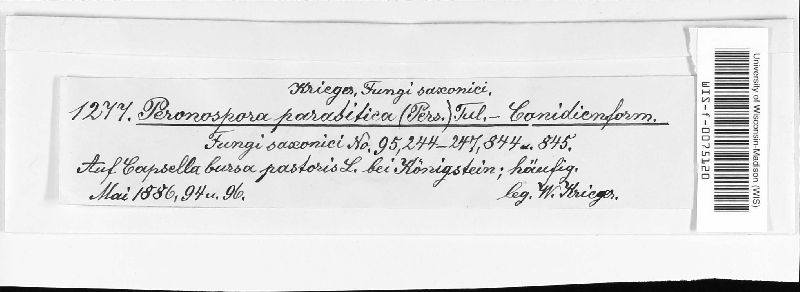 Krieger, Fungi saxonici.
1277. Peronospora parasitica (Pers.) Tul. – Conidienform.
Fungi saxonici No. 95, 244–247, 844 u. 845.
Auf Capsella bursa pastoris L. bei Königstein; häufig.
Mai 1886, 94 u. 96. leg. W. Krieger.
University of Wisconsin-Madison (WIS)
WIS-f-0075120